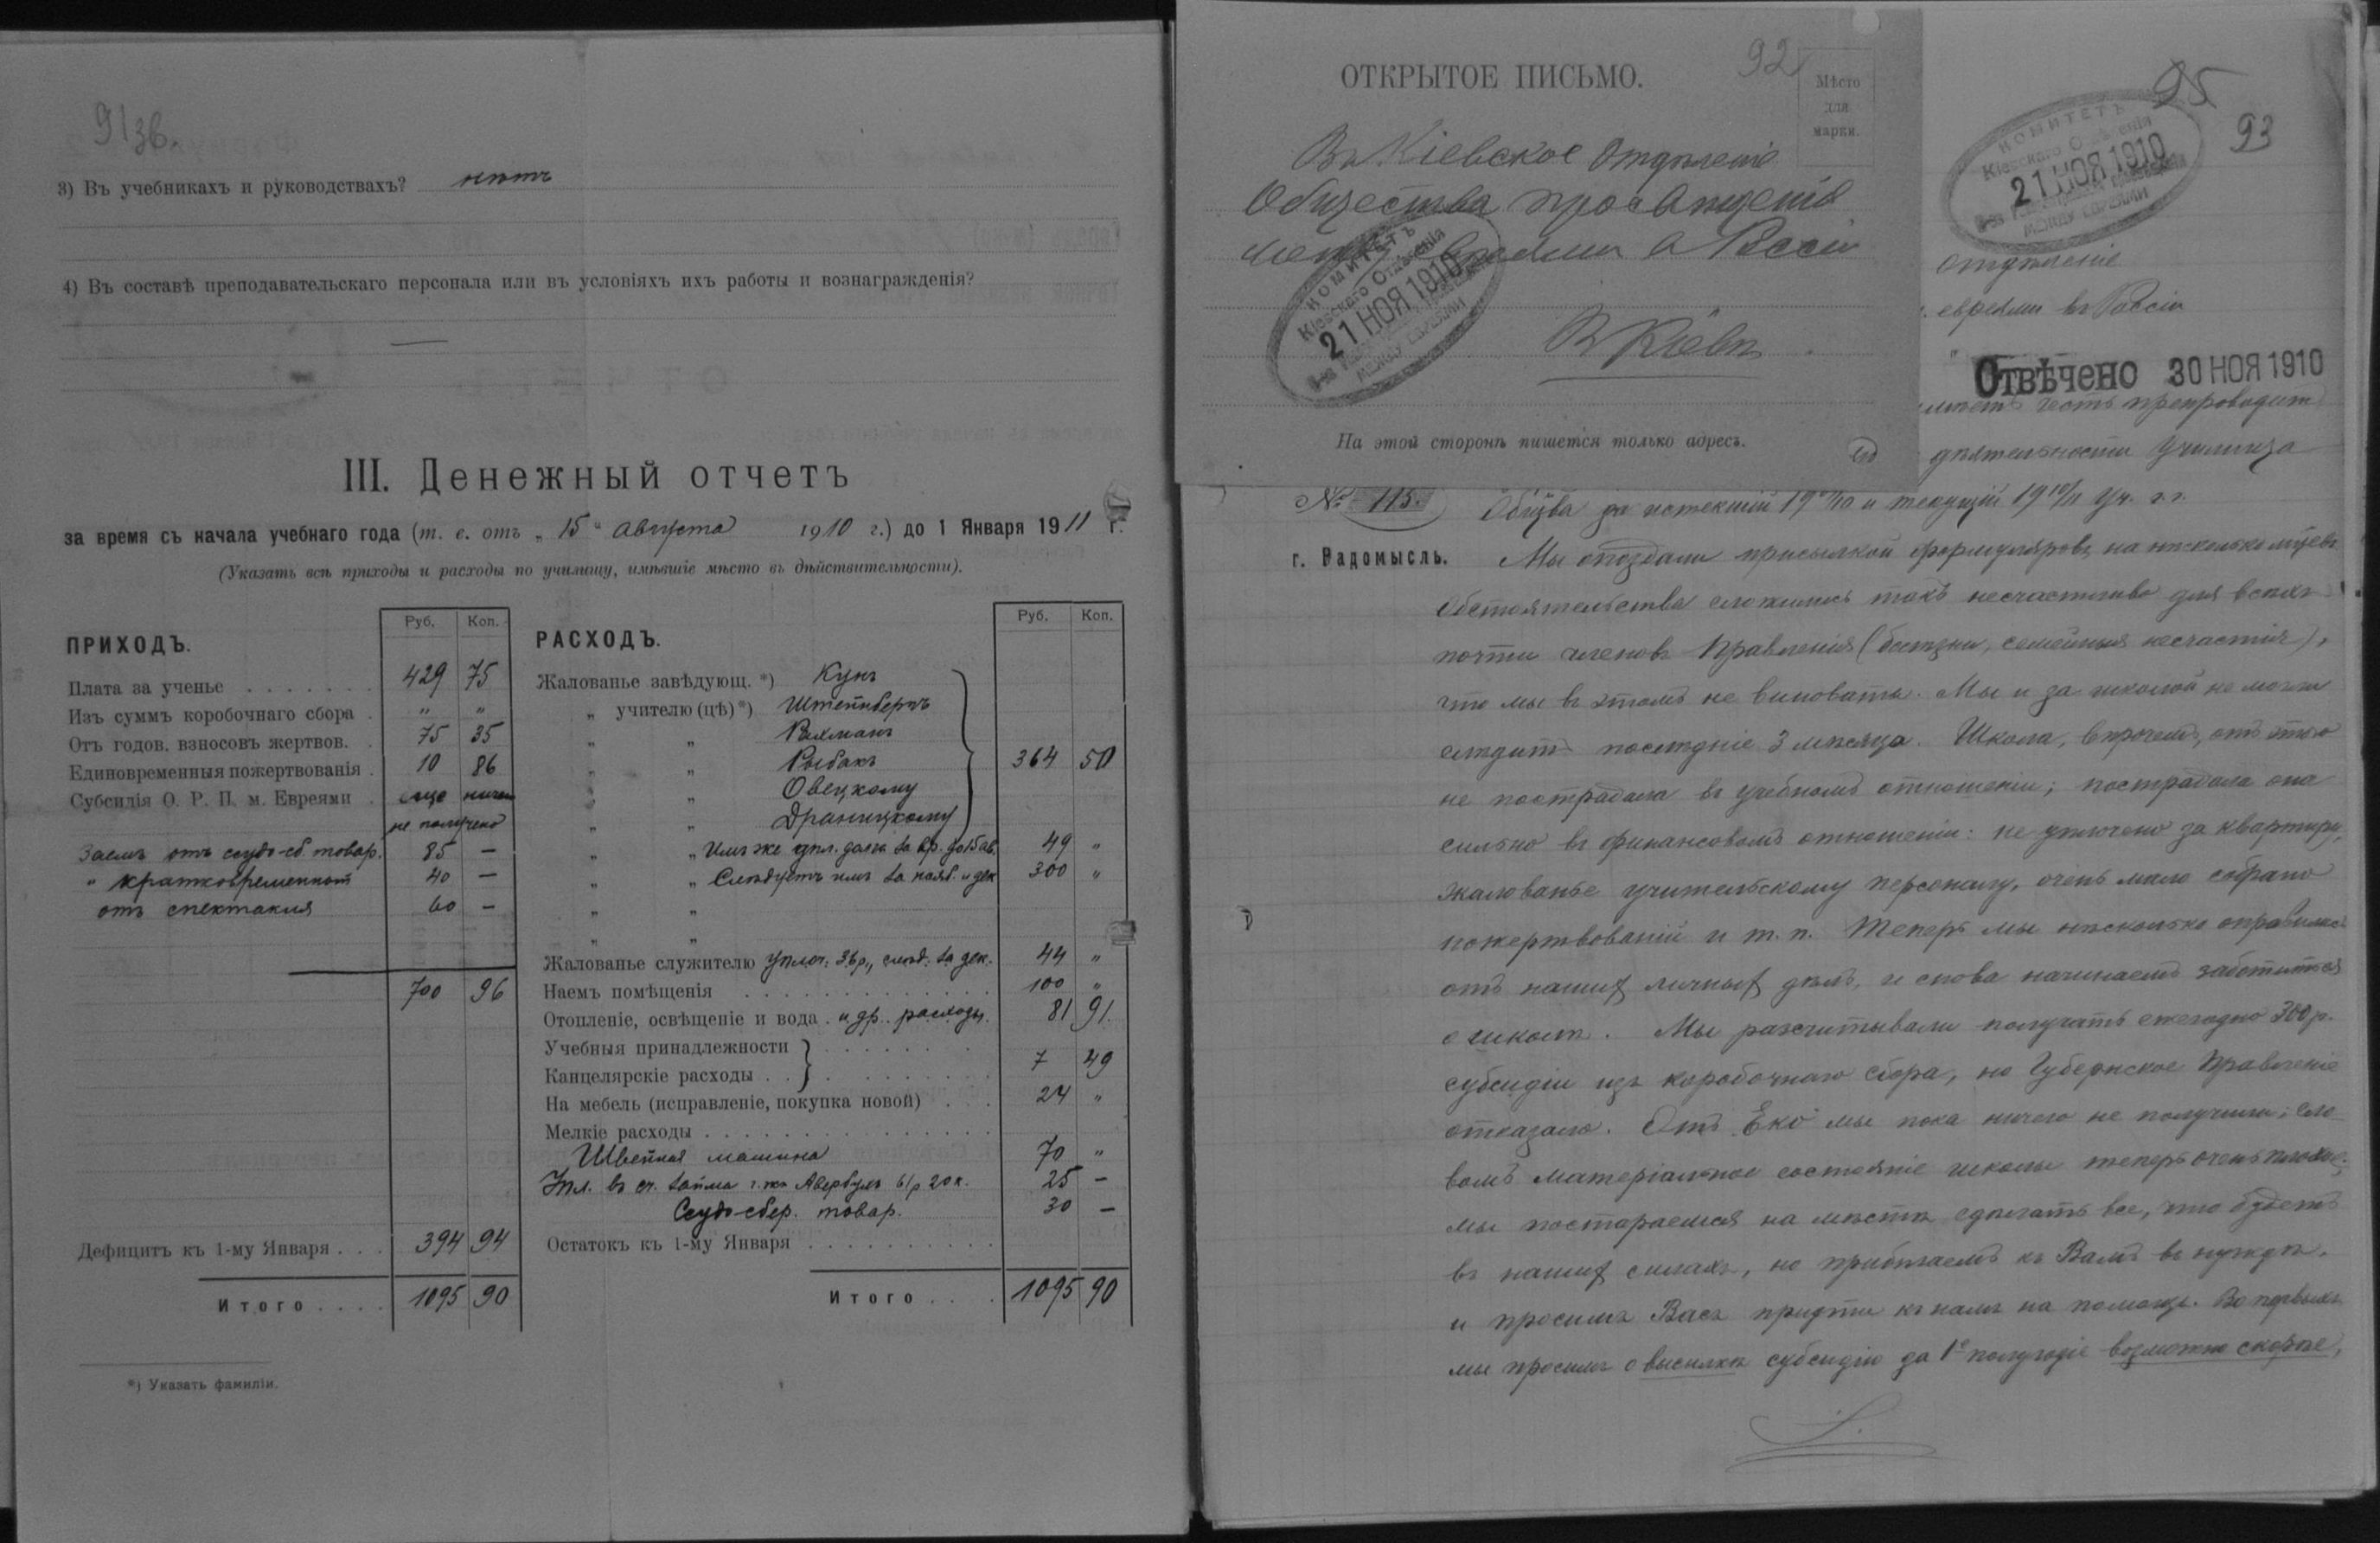 91зв.
3) Въ учебникахъ и руководствахъ? нѣтъ
4) Въ составѣ преподавательскаго персонала или въ условіяхъ ихъ работы и вознагражденія?
—
III. Денежный отчетъ
за время съ начала учебнаго года (т. е. отъ „ 15 " августа 1910 г.) до 1 Января 1911 г.
(Указать всѣ приходы и расходы по училищу, имѣвшіе мѣсто въ дѣйствительности).
ПРИХОДЪ. Руб. Коп.
Плата за ученье 429 75
Изъ суммъ коробочнаго сбора " "
Отъ годов. взносовъ жертвов. 75 35
Единовременныя пожертвованія 10 86
Субсидія О. Р. П. м. Евреями еще ничего
не получено
Заемъ отъ ссудо-сб. товар. 85 —
" кратковременный 40 —
отъ спектакля 60 —
700 96
Дефицитъ къ 1-му Января 394 94
Итого 1095 90
РАСХОДЪ. Руб. Коп.
Жалованье завѣдующ. *) Кунъ
„ учителю (цѣ) *) Штейнбергъ
„ „ Рахманъ
„ „ Рыбакъ 364 50
„ „ Овецкому
„ „ Драницкому
„ „ Имъ же упл. долга за вр. до 15 ав. 49 "
„ „ Слѣдуетъ имъ за нояб. и дек 300 "
„ „
„ „
Жалованье служителю уплоч. 36 р., слѣд. за дек. 44 "
Наемъ помѣщенія 100 "
Отопленіе, освѣщеніе и вода и др. расходы. 81 91
Учебныя принадлежности
Канцелярскіе расходы 7 49
На мебель (исправленіе, покупка новой) 24 "
Мелкіе расходы
Швейная машина 70 "
Упл. въ сч. займа г-жѣ Авербухъ 61 р 20 к. 25 —
Ссудо-сбер. товар. 30 —
Остатокъ къ 1-му Января
Итого 1095 90
*) Указать фамиліи.
92
ОТКРЫТОЕ ПИСЬМО.
Мѣсто
для
марки.
Въ Кіевское Отдѣленіе
Общества просвѣщенія
между евреями въ Россіи
КОМИТЕТЪ
Кіевскаго Отдѣленія
21 НОЯ 1910
МЕЖДУ ЕВРЕЯМИ
Въ Кіевѣ
На этой сторонѣ пишется только адресъ.
95
93
КОМИТЕТЪ
Кіевскаго Отдѣленія
21 НОЯ 1910
МЕЖДУ ЕВРЕЯМИ
отдѣленіе
евреями въ Россіи
Отвѣчено 30 НОЯ 1910
имѣетъ честь препроводить
дѣятельности Училища
№ 115. Общва за истекшій 1909/10 и текущій 1910/11 уч. г.г.
г. Радомысль. Мы опоздали присылкой формуляровъ на нѣсколько мѣсяц
Обстоятельства сложились такъ несчастливо для всѣхъ
почти членовъ Правленія (болѣзни, семейныя несчастія),
что мы въ этомъ не виноваты. Мы и за школой не могли
слѣдить послѣдніе 3 мѣсяца. Школа, впрочемъ, отъ этого
не пострадала въ учебномъ отношеніи; пострадала она
сильно въ финансовомъ отношеніи: не уплочено за квартиру,
жалованье учительскому персоналу, очень мало собрано
пожертвованій и т. п. Теперь мы нѣсколько оправились
отъ нашихъ личныхъ дѣлъ, и снова начинаемъ заботиться
о школѣ. Мы разсчитывали получать ежегодно 300 р.
субсидіи изъ коробочнаго сбора, но Губернское Правленіе
отказало. Отъ Еко мы пока ничего не получили; сло
вомъ матеріальное состояніе школы теперь очень плохое;
мы постараемся на мѣстѣ сдѣлать все, что будетъ
въ нашихъ силахъ, но прибѣгаемъ къ Вамъ въ нуждѣ,
и просимъ Васъ придти къ намъ на помощь. Во первыхъ
мы просимъ о высылкѣ субсидію за 1е полугодіе возможно скорѣе,